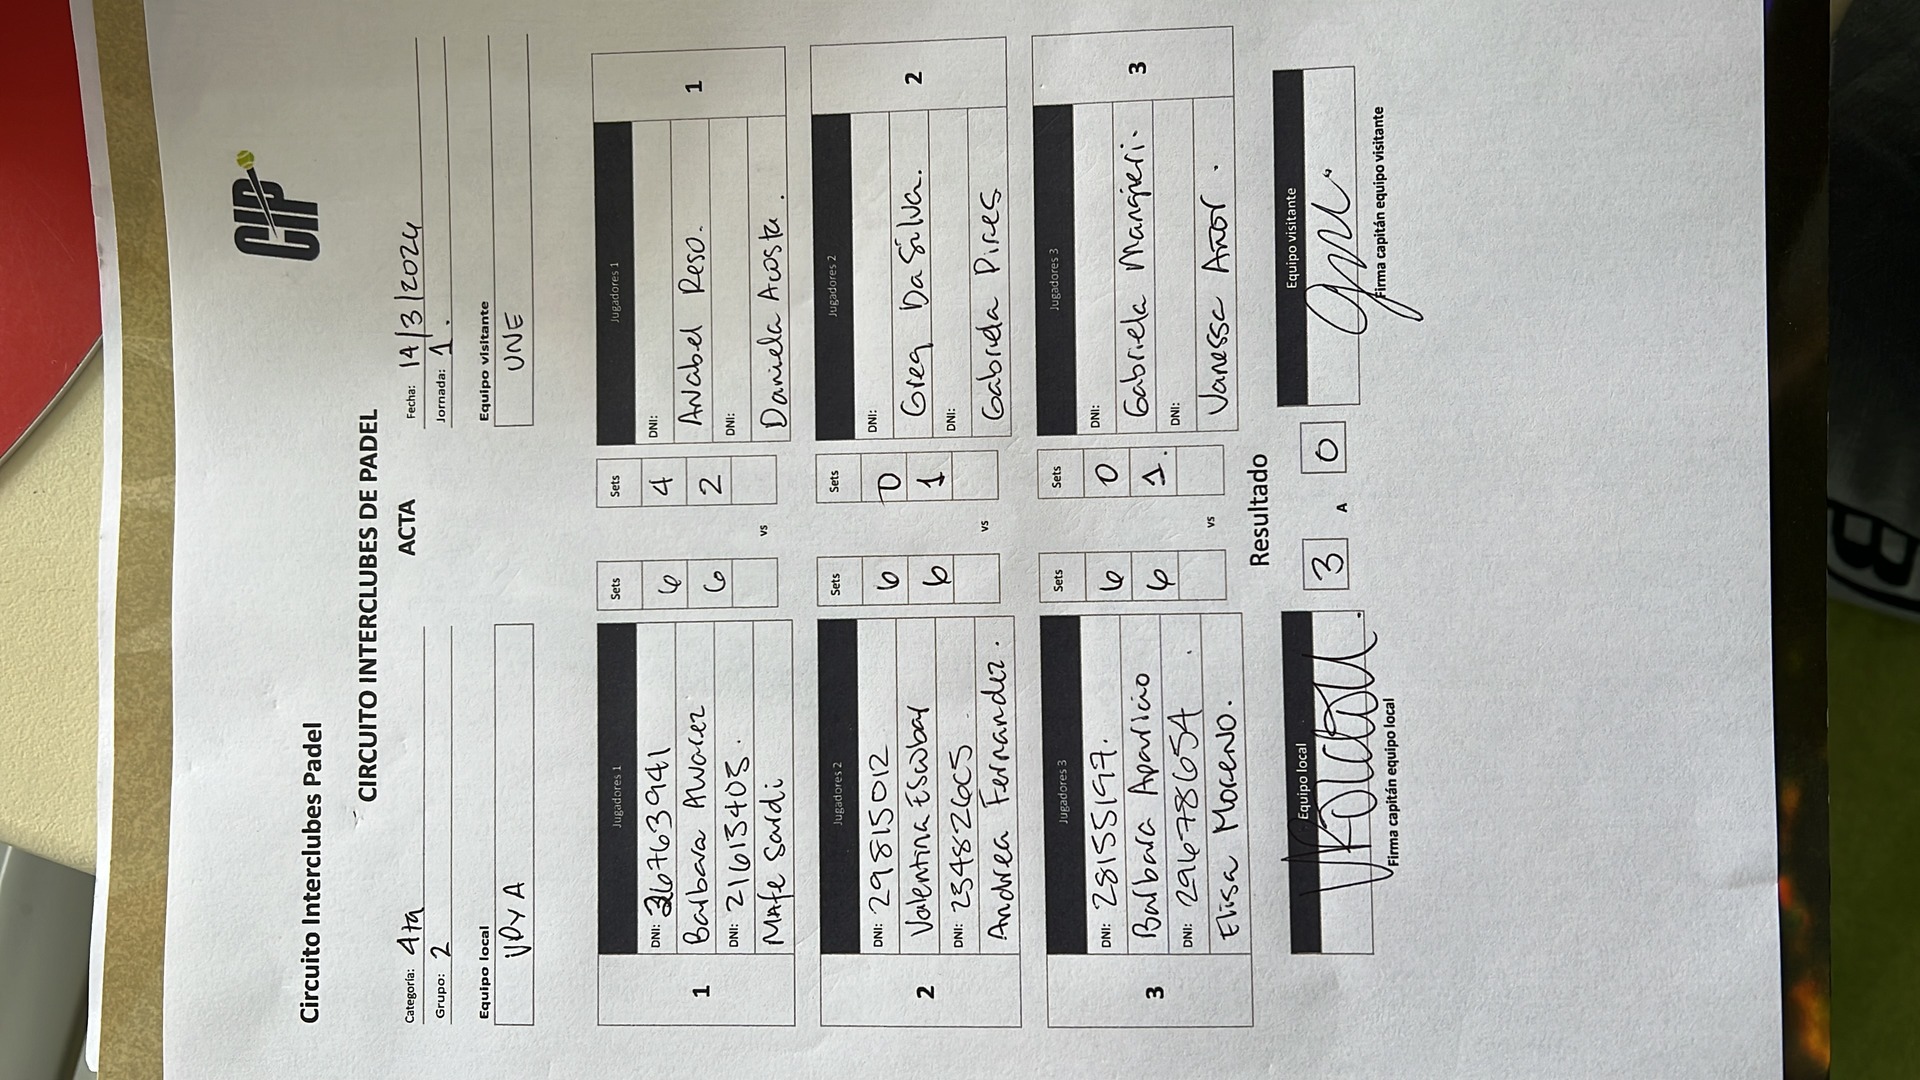 CIP
Circuito Interclubes Padel
CIRCUITO INTERCLUBES DE PADEL
ACTA
Categoría: 4ta
Fecha: 14/3/2024
Grupo: 2
Jornada: 1.
Equipo local
Equipo visitante
UNE
Jugadores 1 Sets Sets Jugadores 1
DNI: 6 4 DNI:
Barbara Alvarez 6 2 Anabel Reso.
DNI: 21613403. DNI:
Mafe Sardi vs Daniela Acosta.
1 1
Jugadores 2 Sets Sets Jugadores 2
DNI: 29815012 6 0 DNI:
Valentina Escobar 6 1 Greq Da Silva.
DNI: DNI:
Andrea Fernandez. vs Gabriela Pires
2 2
Jugadores 3 Sets Sets Jugadores 3
DNI: 28155197. 6 0 DNI:
Barbara Aparicio 6 1. Gabriela Mangieri.
DNI: 29678654 DNI:
Elisa Moreno. vs Vanessa Añor.
3 3
Resultado
Equipo local 3 A 0 Equipo visitante
Firma capitán equipo local Firma capitán equipo visitante